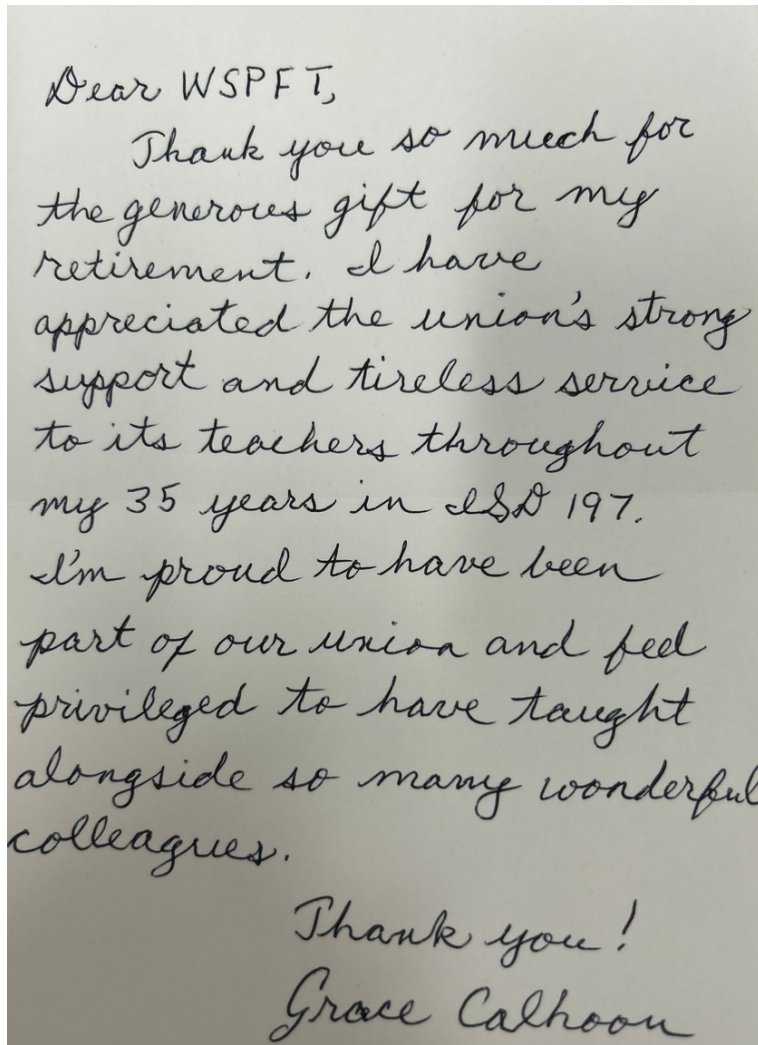 Dear WSPFT,
Thank you so much for
the generous gift for my
retirement. I have
appreciated the union's strong
support and tireless service
to its teachers throughout
my 35 years in ISD 197.
I'm proud to have been
part of our union and feel
privileged to have taught
alongside so many wonderful
colleagues.
Thank you!
Grace Calhoon